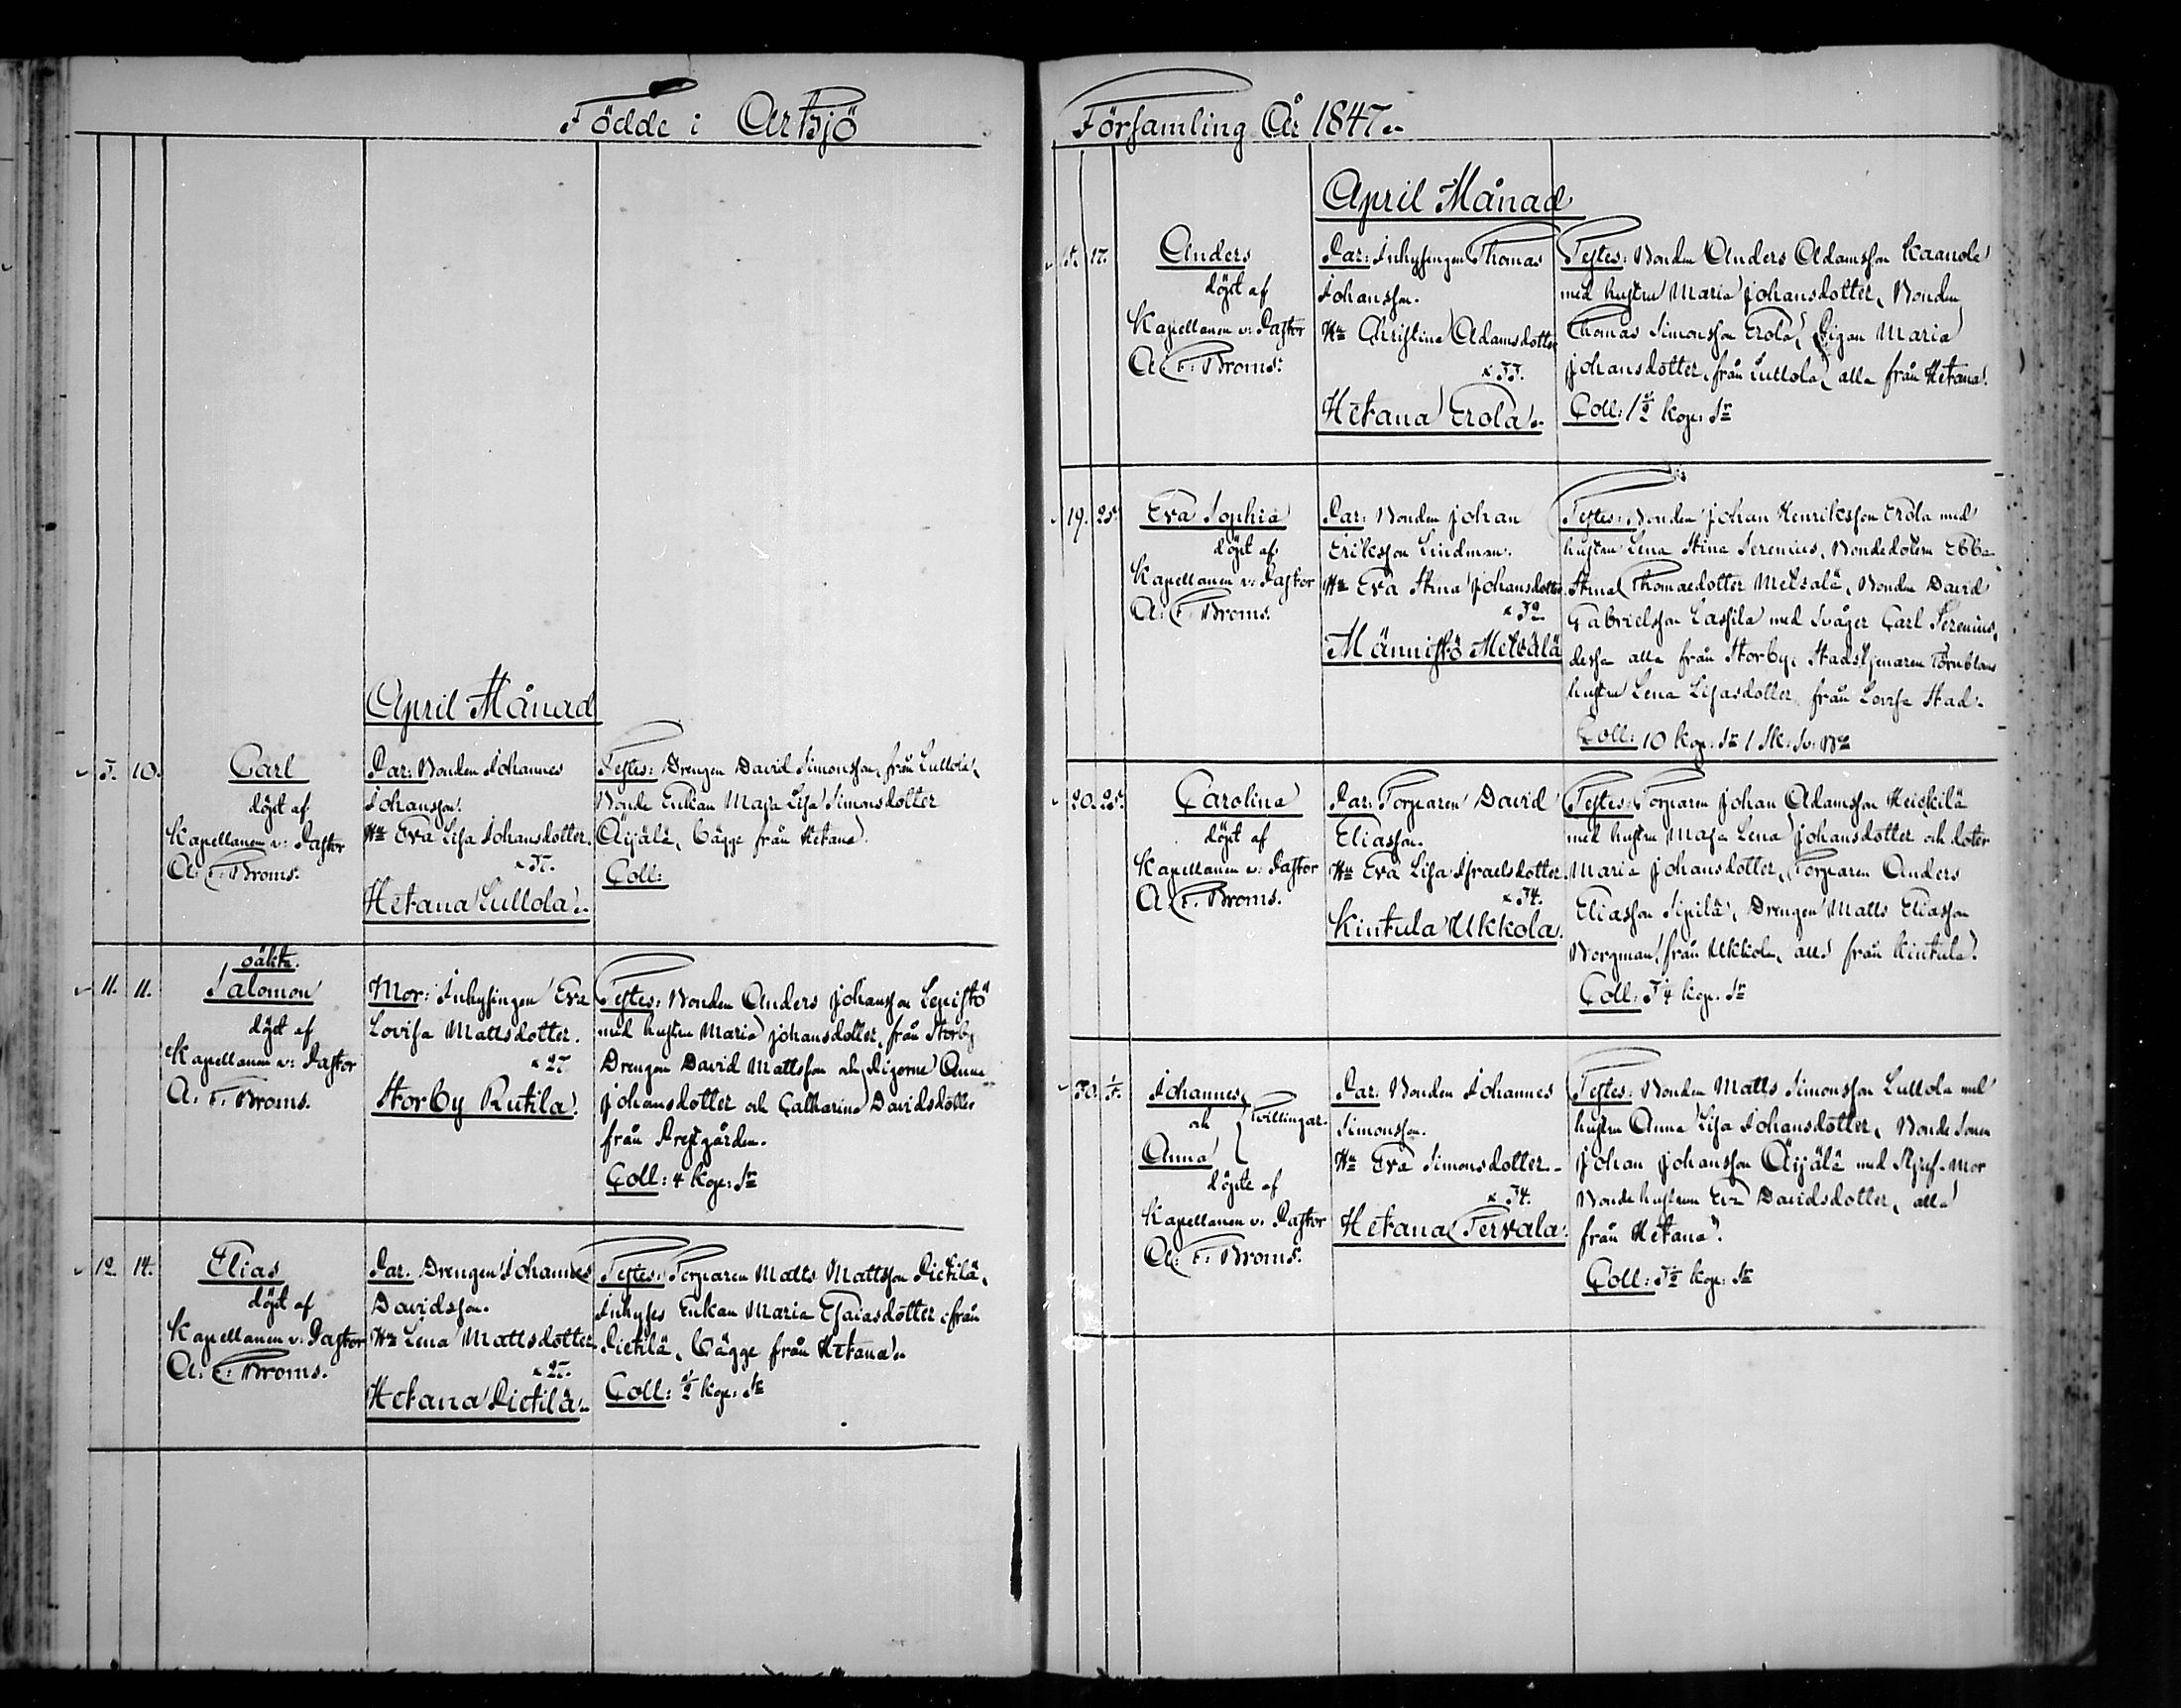 Födde i Artsjö
April Månad
5. 10. Carl
döpt af
Kapellanen v: Pastor
A. F. Broms.
Par: Bonden Johannes
Johansson.
Hu Eva Lisa Johansdotter.
Hietana Lullola.
Testes: Drengen David Simonsson, från Lullola,
Bonde Enkan Maja Lisa Simonsdotter
Äijälä, bägge från Hietana.
Coll:
11. 11. oäkta.
Salomon
döpt af
Kapellanen v: Pastor
A. F. Broms.
Mor: Inhysingen Eva
Lovisa Mattsdotter.
Storby Rutila.
Testes: Bonden Anders Johansson Lepistö
med hustru Maria Johansdotter, från Storby
Drengen David Mattsson och Pigorne Anna
Johansdotter och Catharina Davidsdotter
från Prestgården.
Coll: 4 kop: Sr
12. 14. Elias
döpt af
Kapellanen v: Pastor
A. F. Broms.
Par. Drengen Johannes
Davidsson.
Hu Lena Mattsdotter.
Hietana Pietilä.
Testes: Torparen Matts Mattsson Pietilä,
Inhyses Enkan Maria Esaiasdotter ifrån
Pietilä, bägge från Hietana.
Coll: kop: Sr
Församling År 1847.
April Månad
15. 17. Anders
döpt af
Kapellanen v: Pastor
A. F. Broms.
Par: Inhysingen Thomas
Johansson.
Hu Christina Adamsdotter
Hietana Erola.
Testes: Bonden Anders Adamsson Kaanola
med hustru Maria Johansdotter, Bonden
Thomas Simonsson Erola, Pigan Maria
Johansdotter, från Lullola, alla från Hietana.
Coll: 1½ kop: Sr
19. 25. Eva Sophia
döpt af
Kapellanen v: Pastor
A. F. Broms.
Par: Bonden Johan
Eriksson Lindman.
Hu Eva Stina Johansdotter
Männistö Metsälä
Testes: Bonden Johan Henriksson Erola med
hustru Lena Stina Serenius, Bondedotern Ebba
Stina Thomasdotter Metsälä, Bonden David
Gabrielsson Lassila med Svåger Carl Serenius,
dessa alla från Storby, Stadstjenaren Törnbloms
hustru Lena Lisasdotter från Lovisa Stad.
Coll: 10 kop: Sr 1 Sk: Sv: Bco
20. 25. Carolina
döpt af
Kapellanen v: Pastor
A. F. Broms.
Par: Torparen David
Eliasson.
Hu Eva Lisa Israelsdotter.
Kintula Ukkola.
Testes: Torparen Johan Adamsson Heickilä
med hustru Maja Lena Johansdotter och doter
Maria Johansdotter, Torparen Anders
Eliasson Sipilä, Drengen Matts Eliasson
Borgman från Ukkola, alla från Kintula.
Coll: 54 kop. Sr
30. 1/5. Johannes
och } Tvillingar.
Anna
döpte af
Kapellanen v. Pastor
A. F. Broms.
Par: Bonden Johannes
Simonsson.
Hu Eva Simonsdotter.
Hietana Tervala.
Testes: Bonden Matts Simonsson Lullola med
hustru Anna Lisa Johansdotter, Bonde Sonen
Johan Johansson Äijälä med Styf-mor
Bonde hustrun Eva Davidsdotter, alla
från Hietana.
Coll: kop: Sr